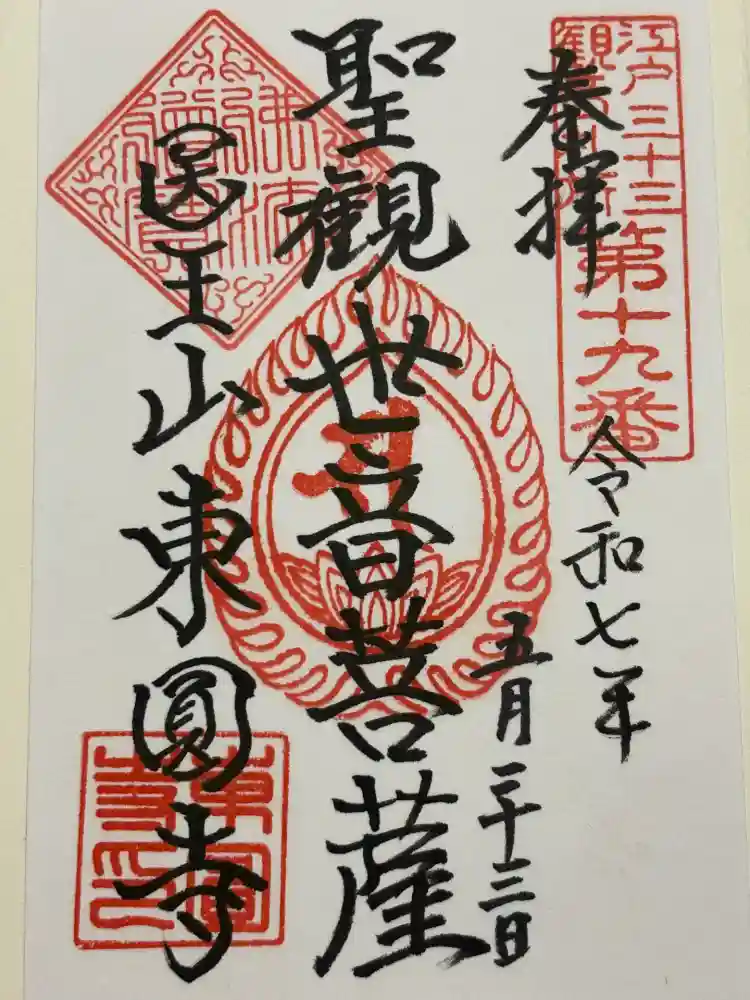 江戸三十三
観音札所
第十九番
奉拝
令和七年
五月二十三日
聖観世音菩薩
医王山東圓寺